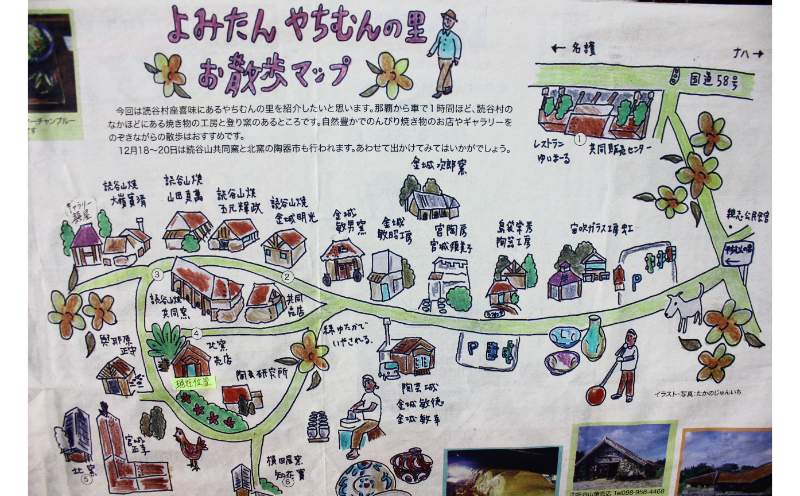 よみたん やちむんの里
お散歩マップ
今回は読谷村座喜味にあるやちむんの里を紹介したいと思います。那覇から車で1時間ほど、読谷村の
なかほどにある焼き物の工房と登り窯のあるところです。自然豊かでのんびり焼き物のお店やギャラリーを
のぞきながらの散歩はおすすめです。
12月18〜20日は読谷山共同窯と北窯の陶器市も行われます。あわせて出かけてみてはいかがでしょう。
← 名護
ナハ →
国道58号
レストラン
ゆいまーる
①
共同販売センター
金城次郎窯
読谷山焼
大嶺實清
読谷山焼
山田真萬
読谷山焼
玉元輝政
読谷山焼
金城明光
ギャラリー
金城
敏男窯
金城
敏昭工房
宮陶房
宮城須美子
島袋常秀
陶芸工房
宙吹ガラス工房 虹
親志公民館
③
②
読谷山焼
共同窯
共同
売店
P
④
北窯
売店
現在位置
與那原
正守
緑ゆたかで
いやされる。
陶芸研究所
陶芸城
金城敏徳
金城敏幸
P
宮城
正享
北窯
⑤
横田屋窯
知花實
⑥
イラスト・写真:たかのじゅんいち
ーチャンプルー
です
読谷山焼売店 Tel098-958-4468